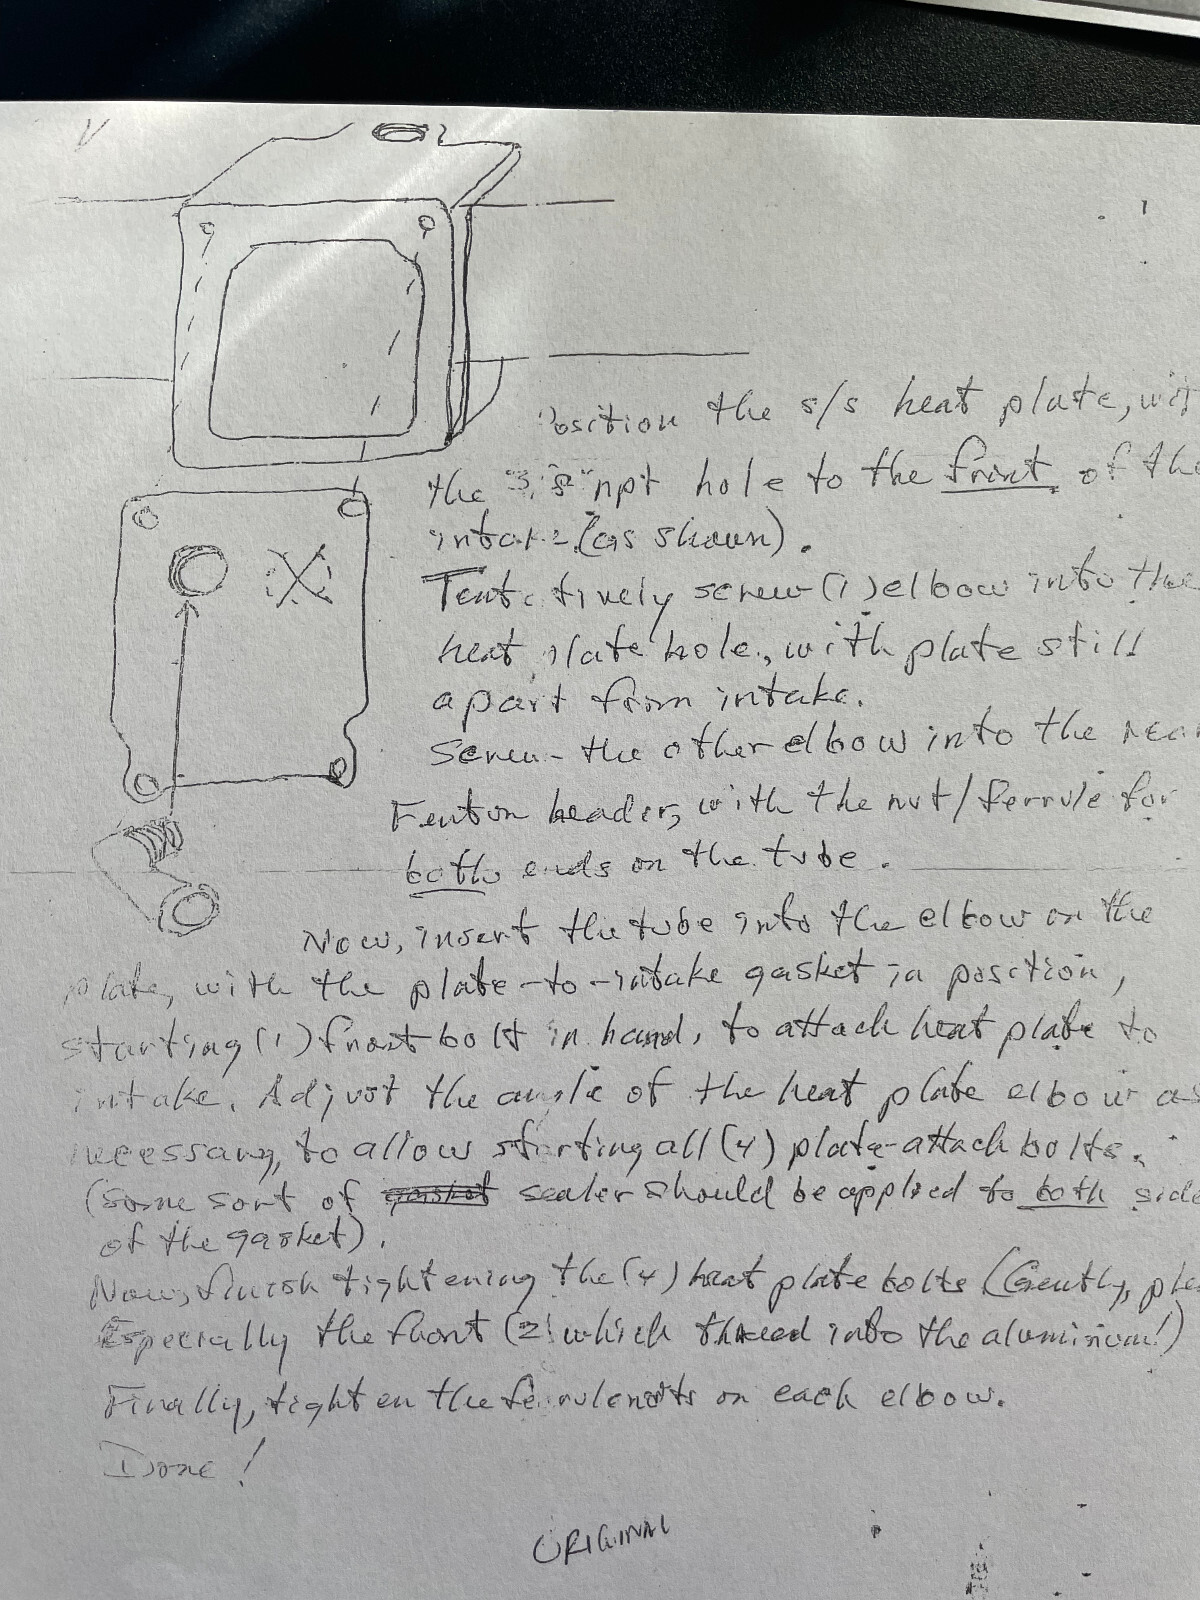 Position the s/s heat plate, wit
the 3/8" npt hole to the front of the
intake (as shown).
Tentatively screw (1) elbow into the
heat plate hole, with plate still
apart from intake.
Screw the other elbow into the rear
Fenton header, with the nut/ferrule for
both ends on the tube.
Now, insert the tube into the elbow on the
plate, with the plate-to-intake gasket in position,
starting (1) front bolt in hand, to attach heat plate to
intake. Adjust the angle of the heat plate elbow as
necessary, to allow starting all (4) plate-attach bolts.
(Some sort of gasket sealer should be applied to both side
of the gasket).
Now, finish tightening the (4) heat plate bolts (Gently, plea
Especially the front (2) which thread into the aluminum!)
Finally, tighten the ferrule nuts on each elbow.
Done!
ORIGINAL